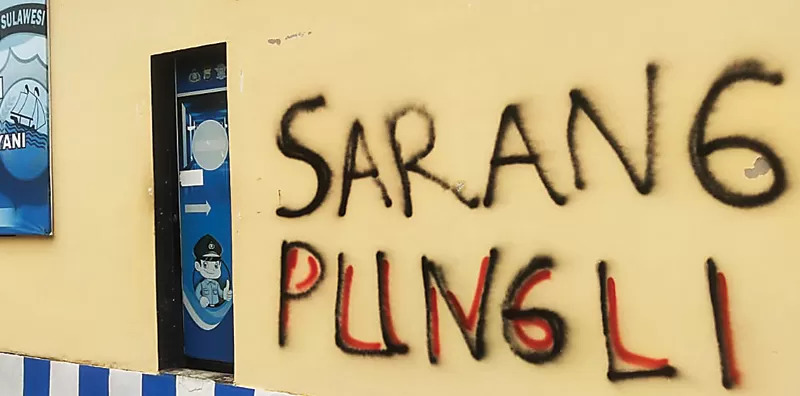 SULAWESI
YANI
SARANG
PUNGLI